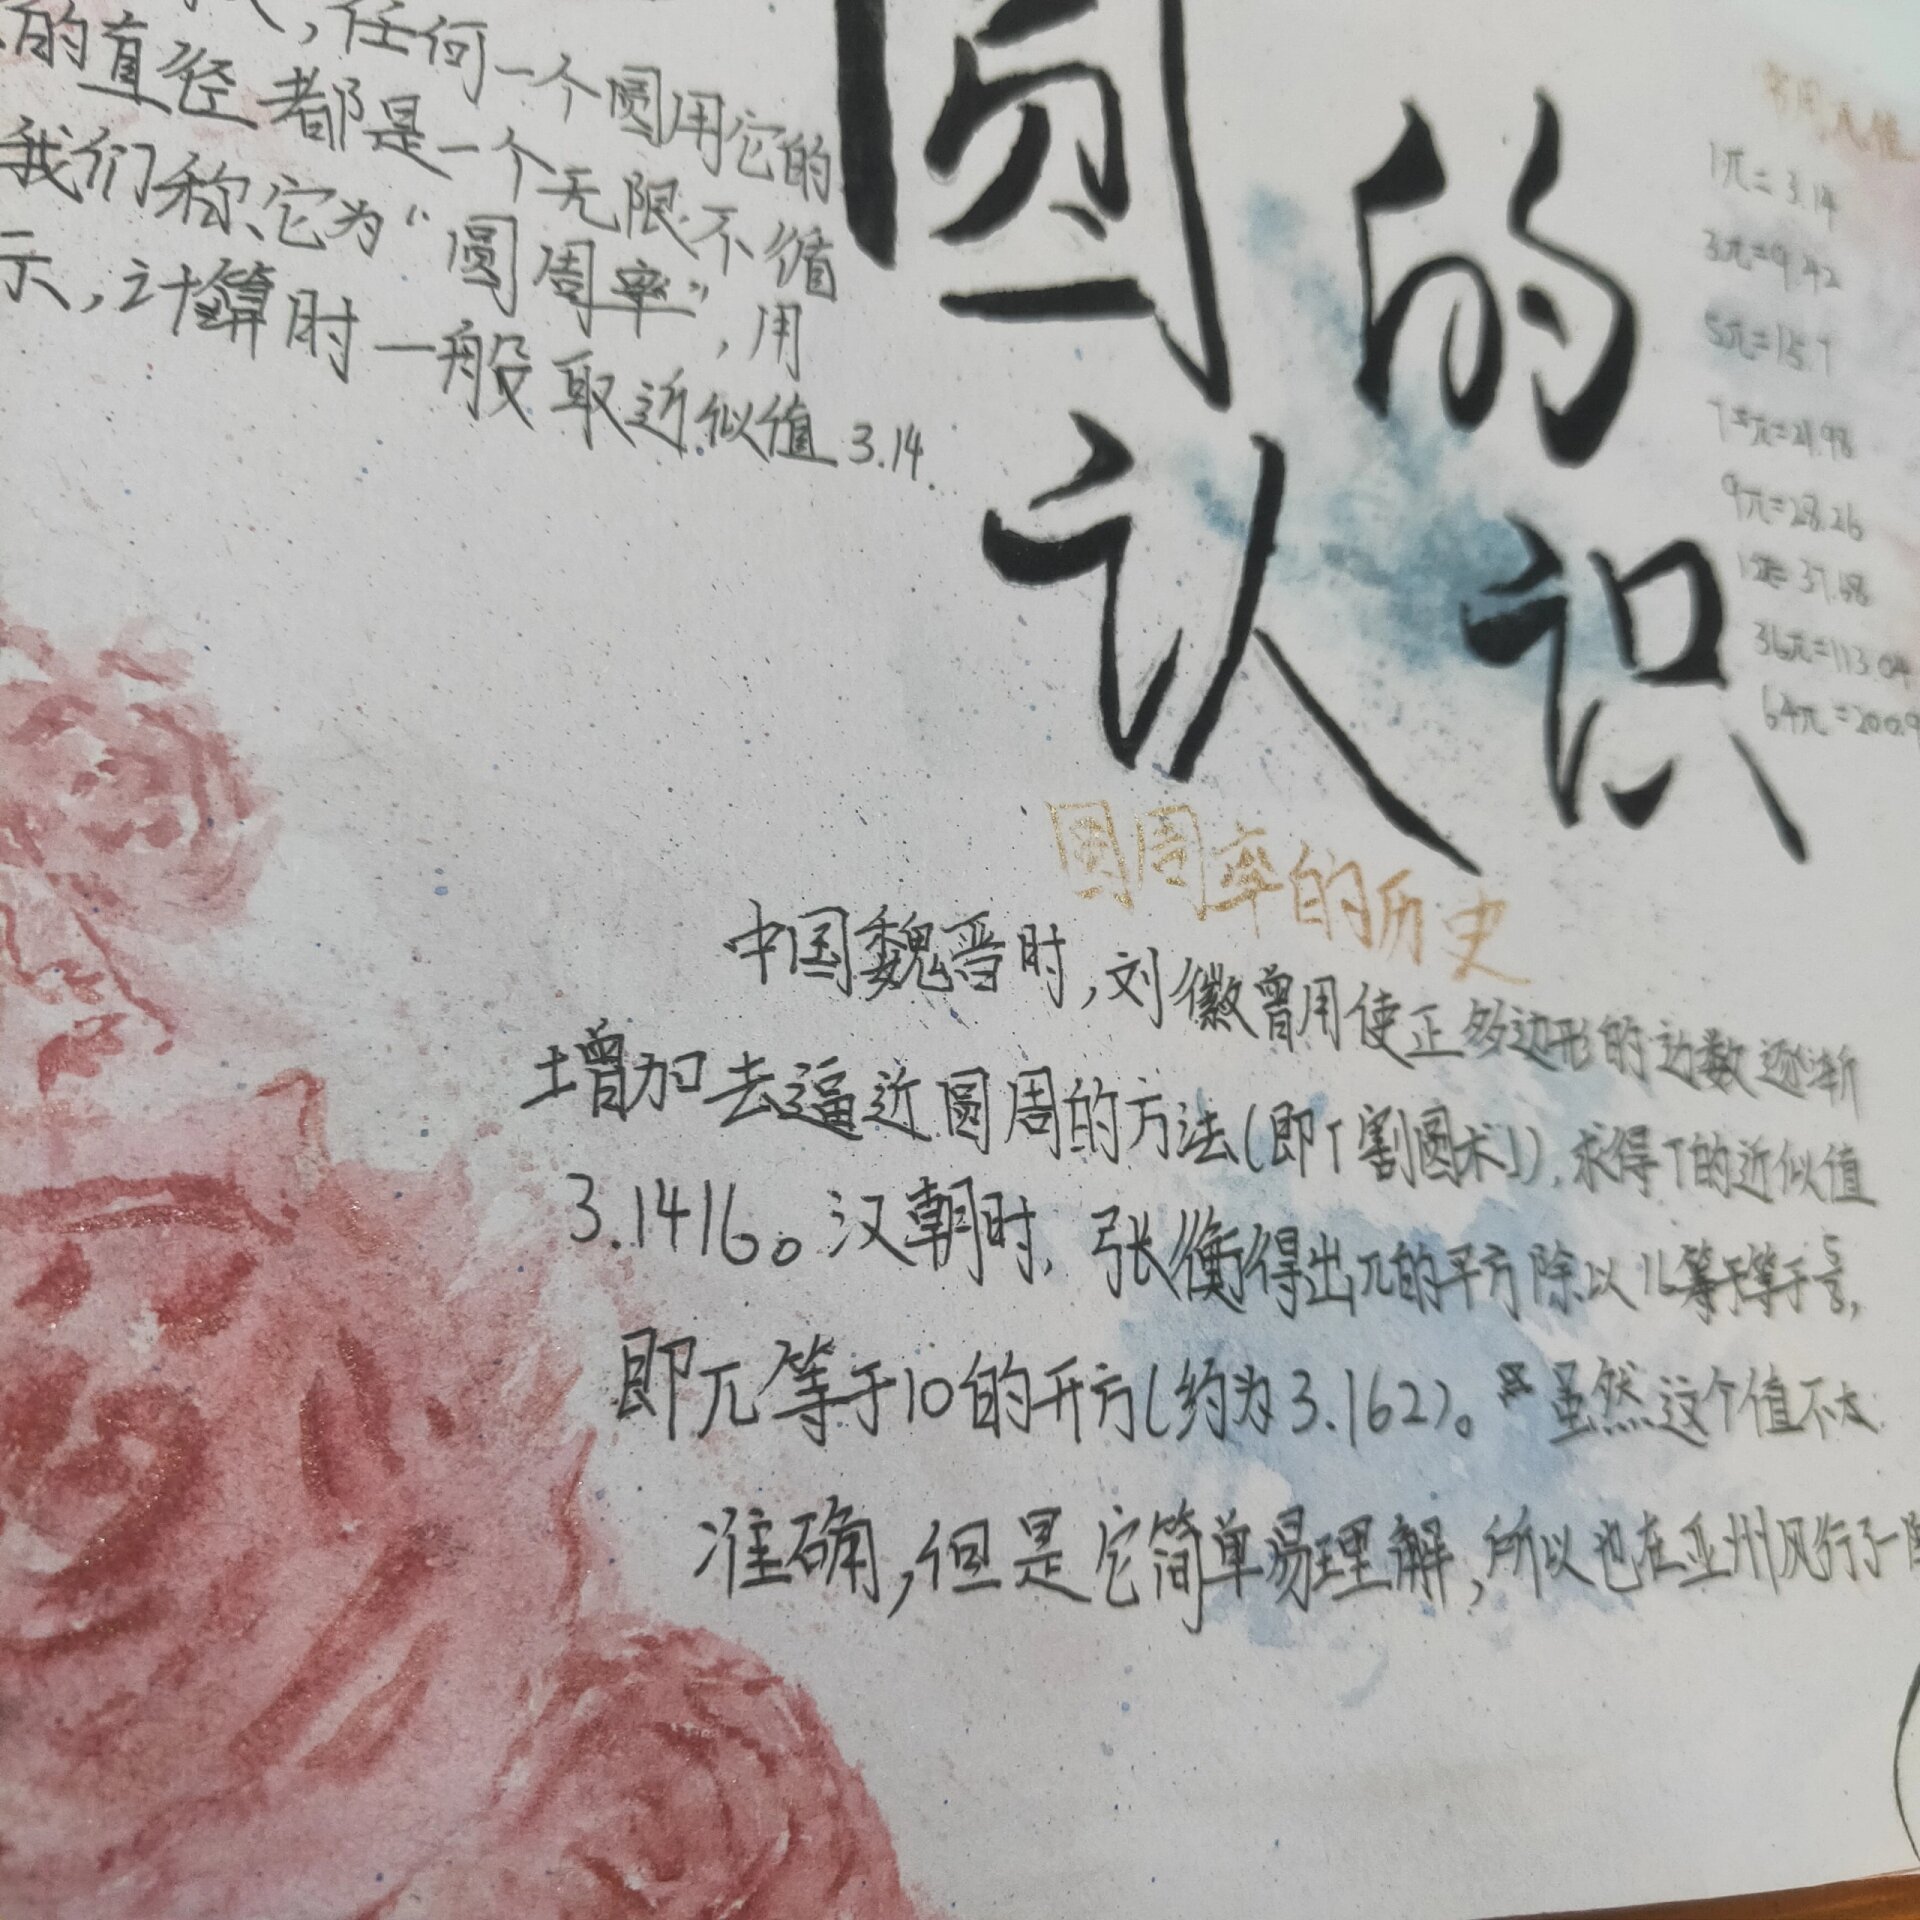 ，任何一个圆用它的
的直径都是一个无限不循
我们称它为“圆周率”，用
示，计算时一般取近似值3.14.
圆的
认识
1π=3.14
3π=9.42
5π=15.7
7π=21.98
9π=28.26
12π=37.68
36π=113.04
64π=200.9
圆周率的历史
中国魏晋时，刘徽曾用使正多边形的边数逐渐
增加去逼近圆周的方法(即「割圆术」)，求得T的近似值
3.1416。汉朝时，张衡得出π的平方除以16等于等于5/8，
即π等于10的开方(约为3.162)。虽然这个值不太
准确，但是它简单易理解，所以也在亚州风行了一